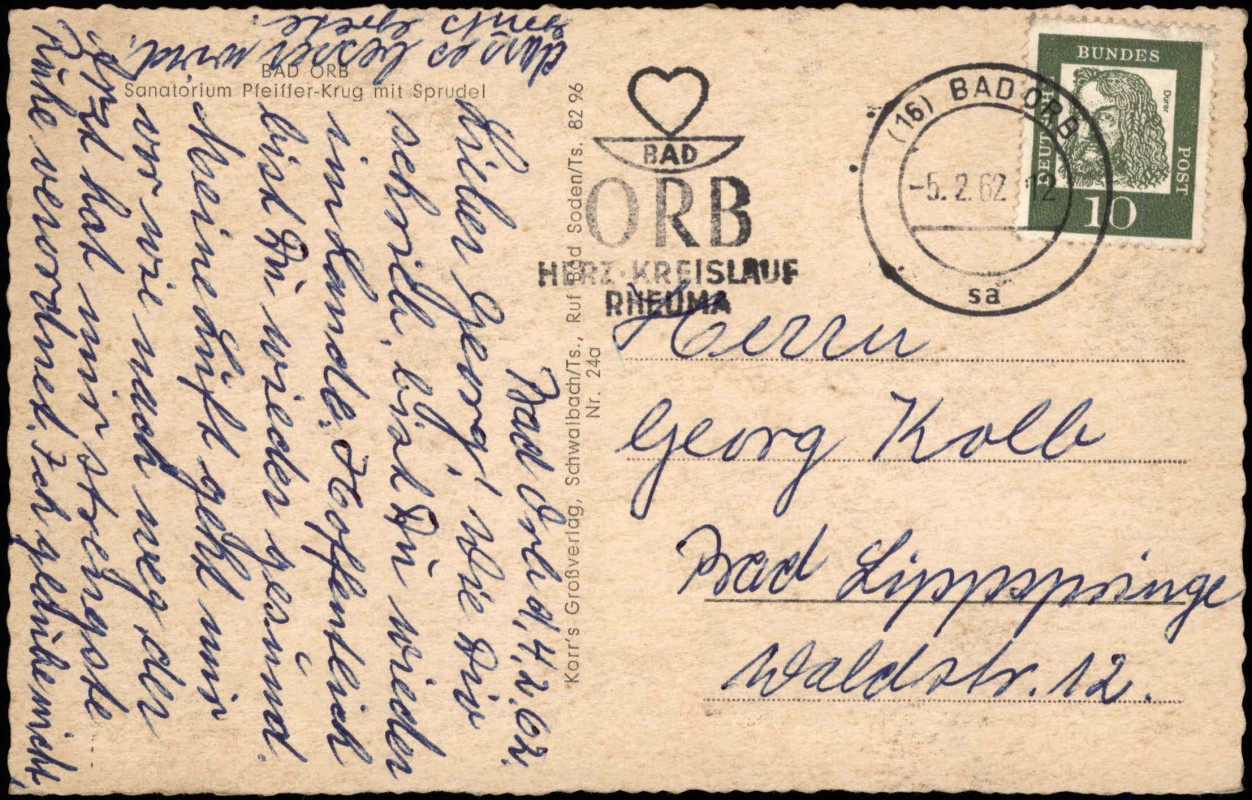 BAD ORB
Sanatorium Pfeiffer-Krug mit Sprudel
Bad Orb d, 4.2.62.
Lieber Georg! Wie
schrieb, bist Du wieder
im Lande. Hoffentlich
bist Du wieder gesund.
Meine Luft geht mir
vor wie nach weg, der
Arzt hat mir strengste
Ruhe verordnet. Ich nicht,
dass es besser wird.
Gruß Grete.
Korr's Großverlag, Schwalbach/Ts., Ruf Bad Soden/Ts. 82 96
Nr. 24a
BAD
ORB
HERZ·KREISLAUF
RHEUMA
(16) BAD ORB
-5.2.62 -12
sa
DEUTSCHE BUNDESPOST
Dürer
10
Herrn
Georg Kolb
Bad Lippspringe
Waldstr. 12.